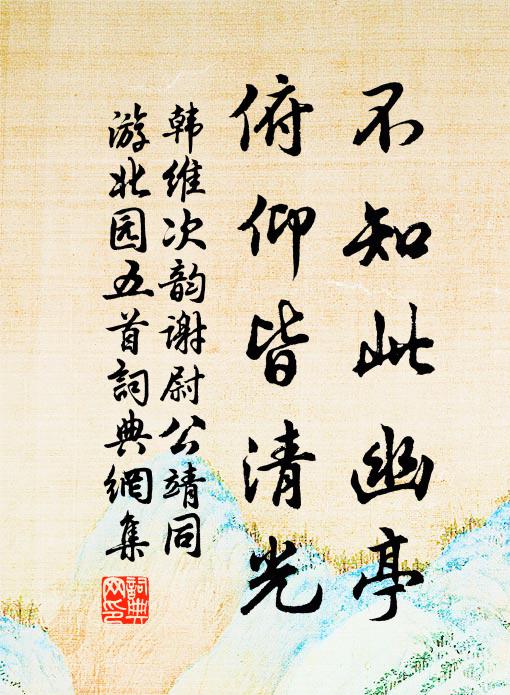 不知此幽亭
俯仰皆清光
韩维次韵谢尉公靖同
游北园五首詞典網集
詞典網印